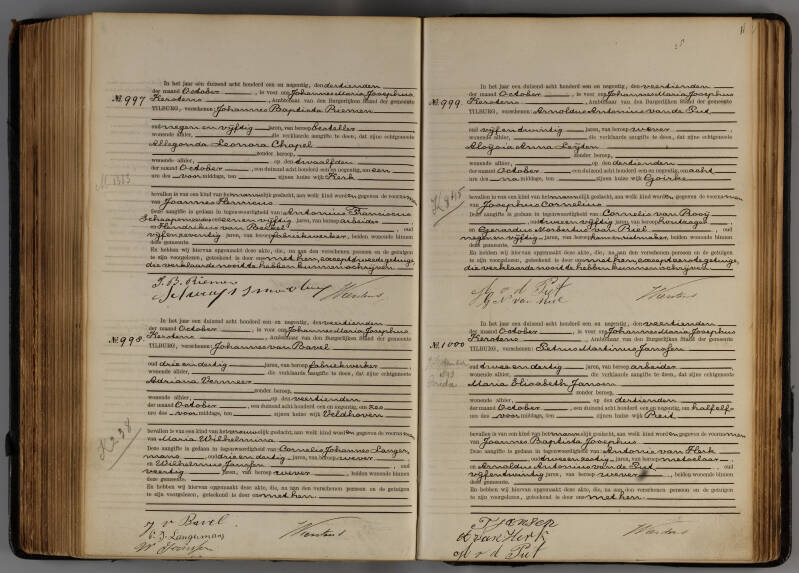 In het jaar een duizend acht honderd een en negentig, den dertienden
der maand October, is voor ons Johannes Maria Josephus
No. 997 Kerstens, Ambtenaar van den Burgerlijken Stand der gemeente
TILBURG, verschenen: Johannes Baptista Riemen
oud negen en vijftig jaren, van beroep besteller
wonende alhier, die verklaarde aangifte te doen, dat zijne echtgenoote
Allegonda Leonora Chapel
zonder beroep,
wonende alhier, op den twaalfden
der maand October, een duizend acht honderd een en negentig, om een
ure des voor middags, ten zijnen huize wijk Kerk
bevallen is van een kind van het mannelijk geslacht, aan welk kind worden gegeven de voornamen
van Joannes Henricus
Deze aangifte is gedaan in tegenwoordigheid van Antonius Franciscus
Schapers, oud een en vijftig jaren, van beroep arbeider
en Hendrikus van Boxtel, oud
vijf en zeventig jaren, van beroep fabriekwerker, beiden wonende binnen
deze gemeente.
En hebben wij hiervan opgemaakt deze akte, die, na aan den verschenen persoon en de getuigen
te zijn voorgelezen, geteekend is door ons met hen, except tweede getuige,
die verklaarde nooit te hebben kunnen schrijven.
J. B. Riemen
Kerstens
In het jaar een duizend acht honderd een en negentig, den veertienden
der maand October, is voor ons Johannes Maria Josephus
No. 998. Kerstens, Ambtenaar van den Burgerlijken Stand der gemeente
TILBURG, verschenen: Johannes van Bavel
oud drie en dertig jaren, van beroep fabriekwerker
wonende alhier, die verklaarde aangifte te doen, dat zijne echtgenoote
Adriana Vermeer
zonder beroep,
wonende alhier, op den veertienden
der maand October, een duizend acht honderd een en negentig, om zes
ure des voor middags, ten zijnen huize wijk Veldhoven
bevallen is van een kind van het vrouwelijk geslacht, aan welk kind worden gegeven de voornamen
van Maria Wilhelmina
Deze aangifte is gedaan in tegenwoordigheid van Cornelis Johannes Langer-
mans, oud drie en dertig jaren, van beroep wever
en Wilhelmus Janssen, oud
veertig jaren, van beroep wever, beiden wonende binnen
deze gemeente.
En hebben wij hiervan opgemaakt deze akte, die, na aan den verschenen persoon en de getuigen
te zijn voorgelezen, geteekend is door ons met hen.
J v Bavel
C. J. Langermans
W Janssen
Kerstens
In het jaar een duizend acht honderd een en negentig, den veertienden
der maand October, is voor ons Johannes Maria Josephus
No. 999. Kerstens, Ambtenaar van den Burgerlijken Stand der gemeente
TILBURG, verschenen: Arnoldus Antonius van de Piet
oud vijf en twintig jaren, van beroep wever
wonende alhier, die verklaarde aangifte te doen, dat zijne echtgenoote
Aloysia Anna Leijten
zonder beroep,
wonende alhier, op den dertienden
der maand October, een duizend acht honderd een en negentig, om acht
ure des na middags, ten zijnen huize wijk Goirke
bevallen is van een kind van het mannelijk geslacht, aan welk kind worden gegeven de voornamen
van Josephus Cornelius
Deze aangifte is gedaan in tegenwoordigheid van Cornelis van Rooij
oud twee en vijftig jaren, van beroep
en Gerardus Norbertus van Riel, oud
negen en vijftig jaren, van beroep, beiden wonende binnen
deze gemeente.
En hebben wij hiervan opgemaakt deze akte, die, na aan den verschenen persoon en de getuigen
te zijn voorgelezen, geteekend is door ons met hen, except eerste getuige,
die verklaarde nooit te hebben kunnen schrijven.
A. v. d. Piet
Kerstens
In het jaar een duizend acht honderd een en negentig, den veertienden
der maand October, is voor ons Johannes Maria Josephus
No. 1000 Kerstens, Ambtenaar van den Burgerlijken Stand der gemeente
TILBURG, verschenen: Petrus Martinus Janssen
oud twee en dertig jaren, van beroep arbeider
wonende alhier, die verklaarde aangifte te doen, dat zijne echtgenoote
Maria Elisabeth Jansen
zonder beroep,
wonende alhier, op den dertienden
der maand October, een duizend acht honderd een en negentig, om half elf
ure des voor middags, ten zijnen huize wijk Reit
bevallen is van een kind van het mannelijk geslacht, aan welk kind worden gegeven de voornamen
van Joannes Baptista Josephus
Deze aangifte is gedaan in tegenwoordigheid van Antonie van Herk
oud twee en zestig jaren, van beroep metselaar
en Arnoldus Antonius van de Piet, oud
vijf en twintig jaren, van beroep wever, beiden wonende binnen
deze gemeente.
En hebben wij hiervan opgemaakt deze akte, die, na aan den verschenen persoon en de getuigen
te zijn voorgelezen, geteekend is door ons met hen.
P Jansen
A van Herk
A v d Piet
Kerstens